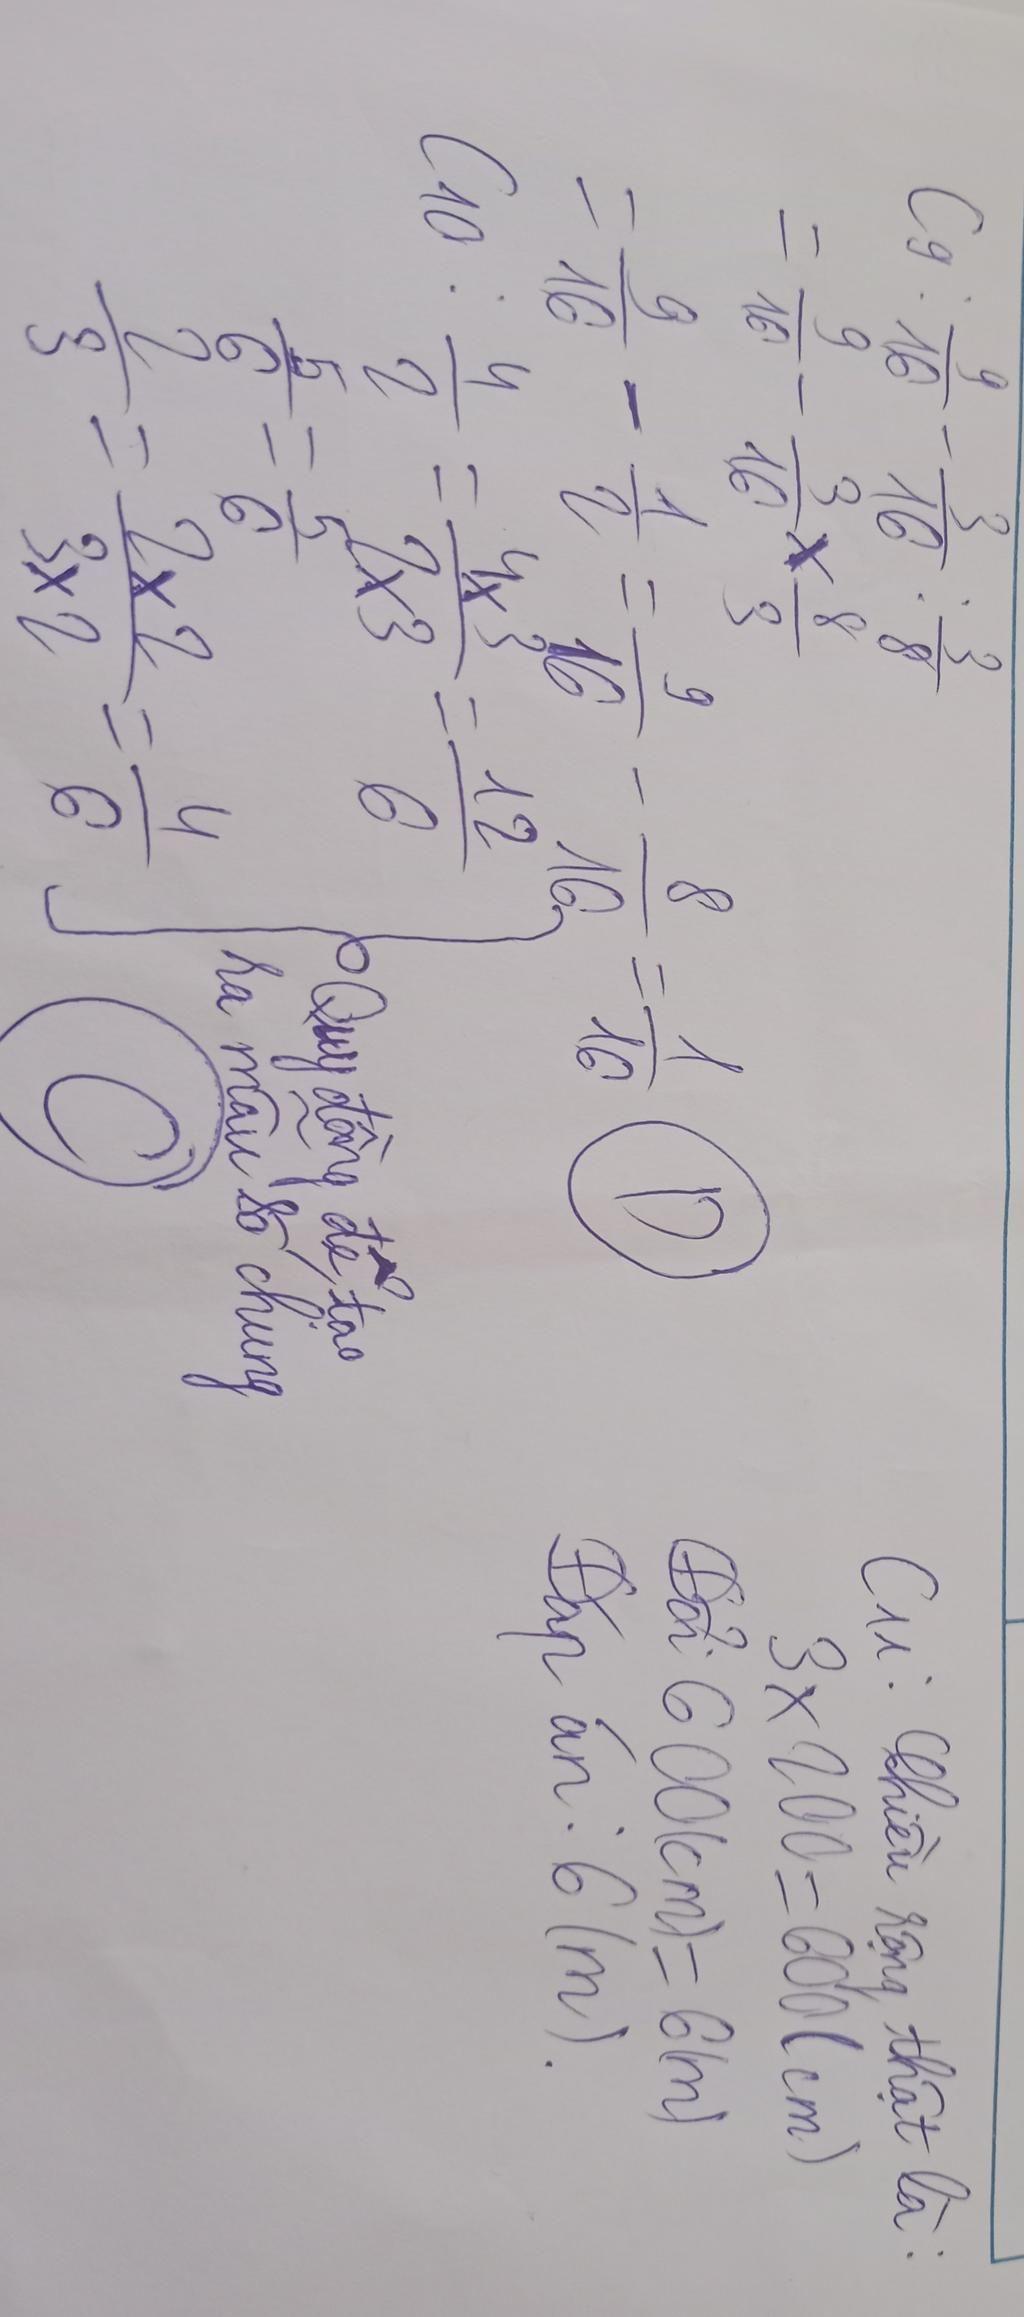 C9: 9/16 - 3/16 : 3/8
= 9/16 - 3/16 x 8/3
= 9/16 - 1/2 = 9/16 - 8/16 = 1/16 D
C10: 4/2 = 4x3/2x3 = 12/6
5/6 = 5/6
2/3 = 2x2/3x2 = 4/6
Quy đồng để tạo
ra mẫu số chung
C
C11: Chiều rộng thật là:
3 x 200 = 600 (cm)
Đổi 600(cm) = 6(m)
Đáp án: 6 (m).